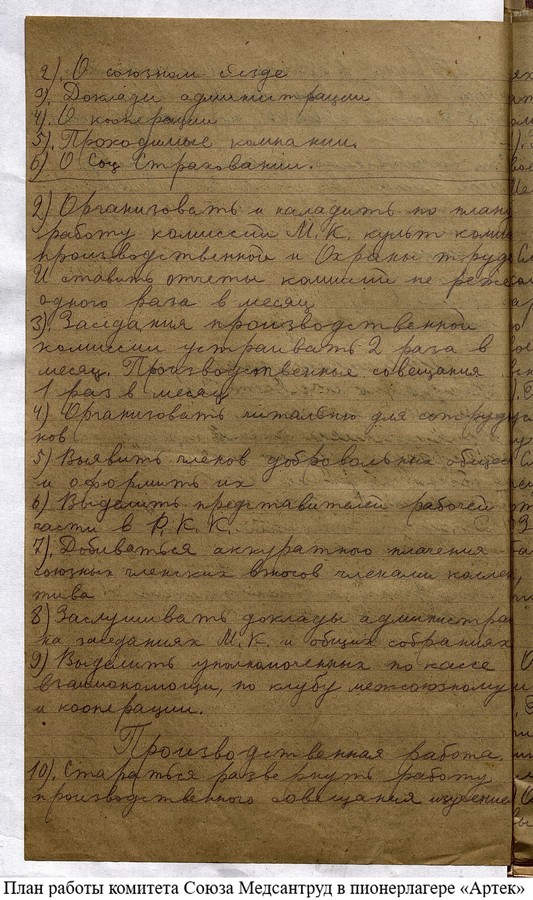 2). О союзном сезде
3). Доклади администрации
4). О кооперации
5). Проходимые компании.
6) О Соц Страховании.
2) Организовать и наладить по плану
работу комиссии М.К. культ комис
производственной и Охраны труда
И ставить отчеты комисий не реже
одного раза в месяц
3). Заседания производственной
комиссии устраивать 2 раза в
месяц. Производственные совещания
1 раз в месяц
4) Организовать читальню для сотрудни
ков
5) Выявить членов добровольных общес
и оформить их
6) Выделить представителей рабочей
части в Р.К.К.
7). Добиваться аккуратного плачения
союзных членских взносов членами коллек
тива
8) Заслушивать доклады администра
на заседаниях М.К. и общих собраниях
9) Выделить уполномоченных по кассе
взаимопомощи, по клубу межсоюзному
и кооперации.
Производственная работа.
10). Стараться развернуть работу
производственного совещания изучение
План работы комитета Союза Медсантруд в пионерлагере «Артек»